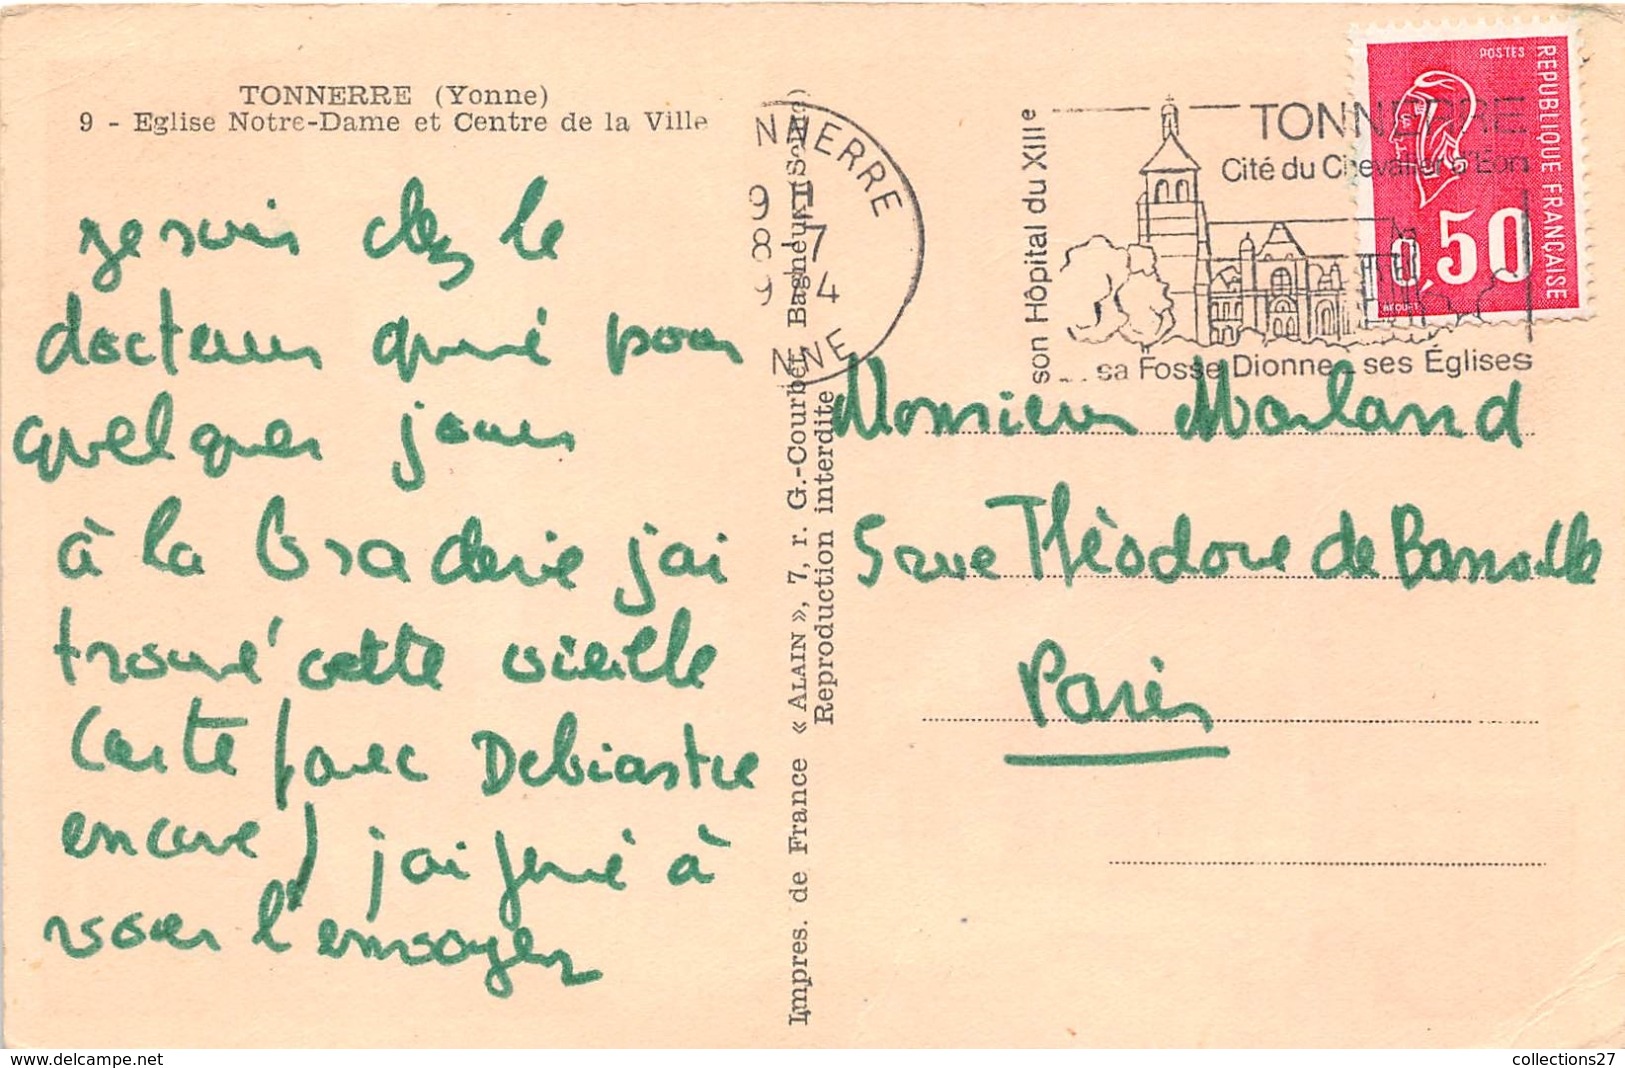 TONNERRE (Yonne)
9 - Eglise Notre-Dame et Centre de la Ville
je suis chez le
docteur pour
quelques jours
à la braderie j'ai
trouvé cette vieille
Carte (avec
encore) j'ai à
vous l'envoyer
Impres. de France « ALAIN », 7, r. G.-Courbet, Bagneux (Seine)
Reproduction interdite
NNERRE
9 H
8 - 7
9 4
NNE
son Hôpital du XIIIe
TONNERRE
Cité du Chevalier d'Eon
sa Fosse Dionne _ ses Églises
POSTES
REPUBLIQUE FRANÇAISE
0,50
Monsieur Marland
5 rue Théodore de Banville
Paris
collections27